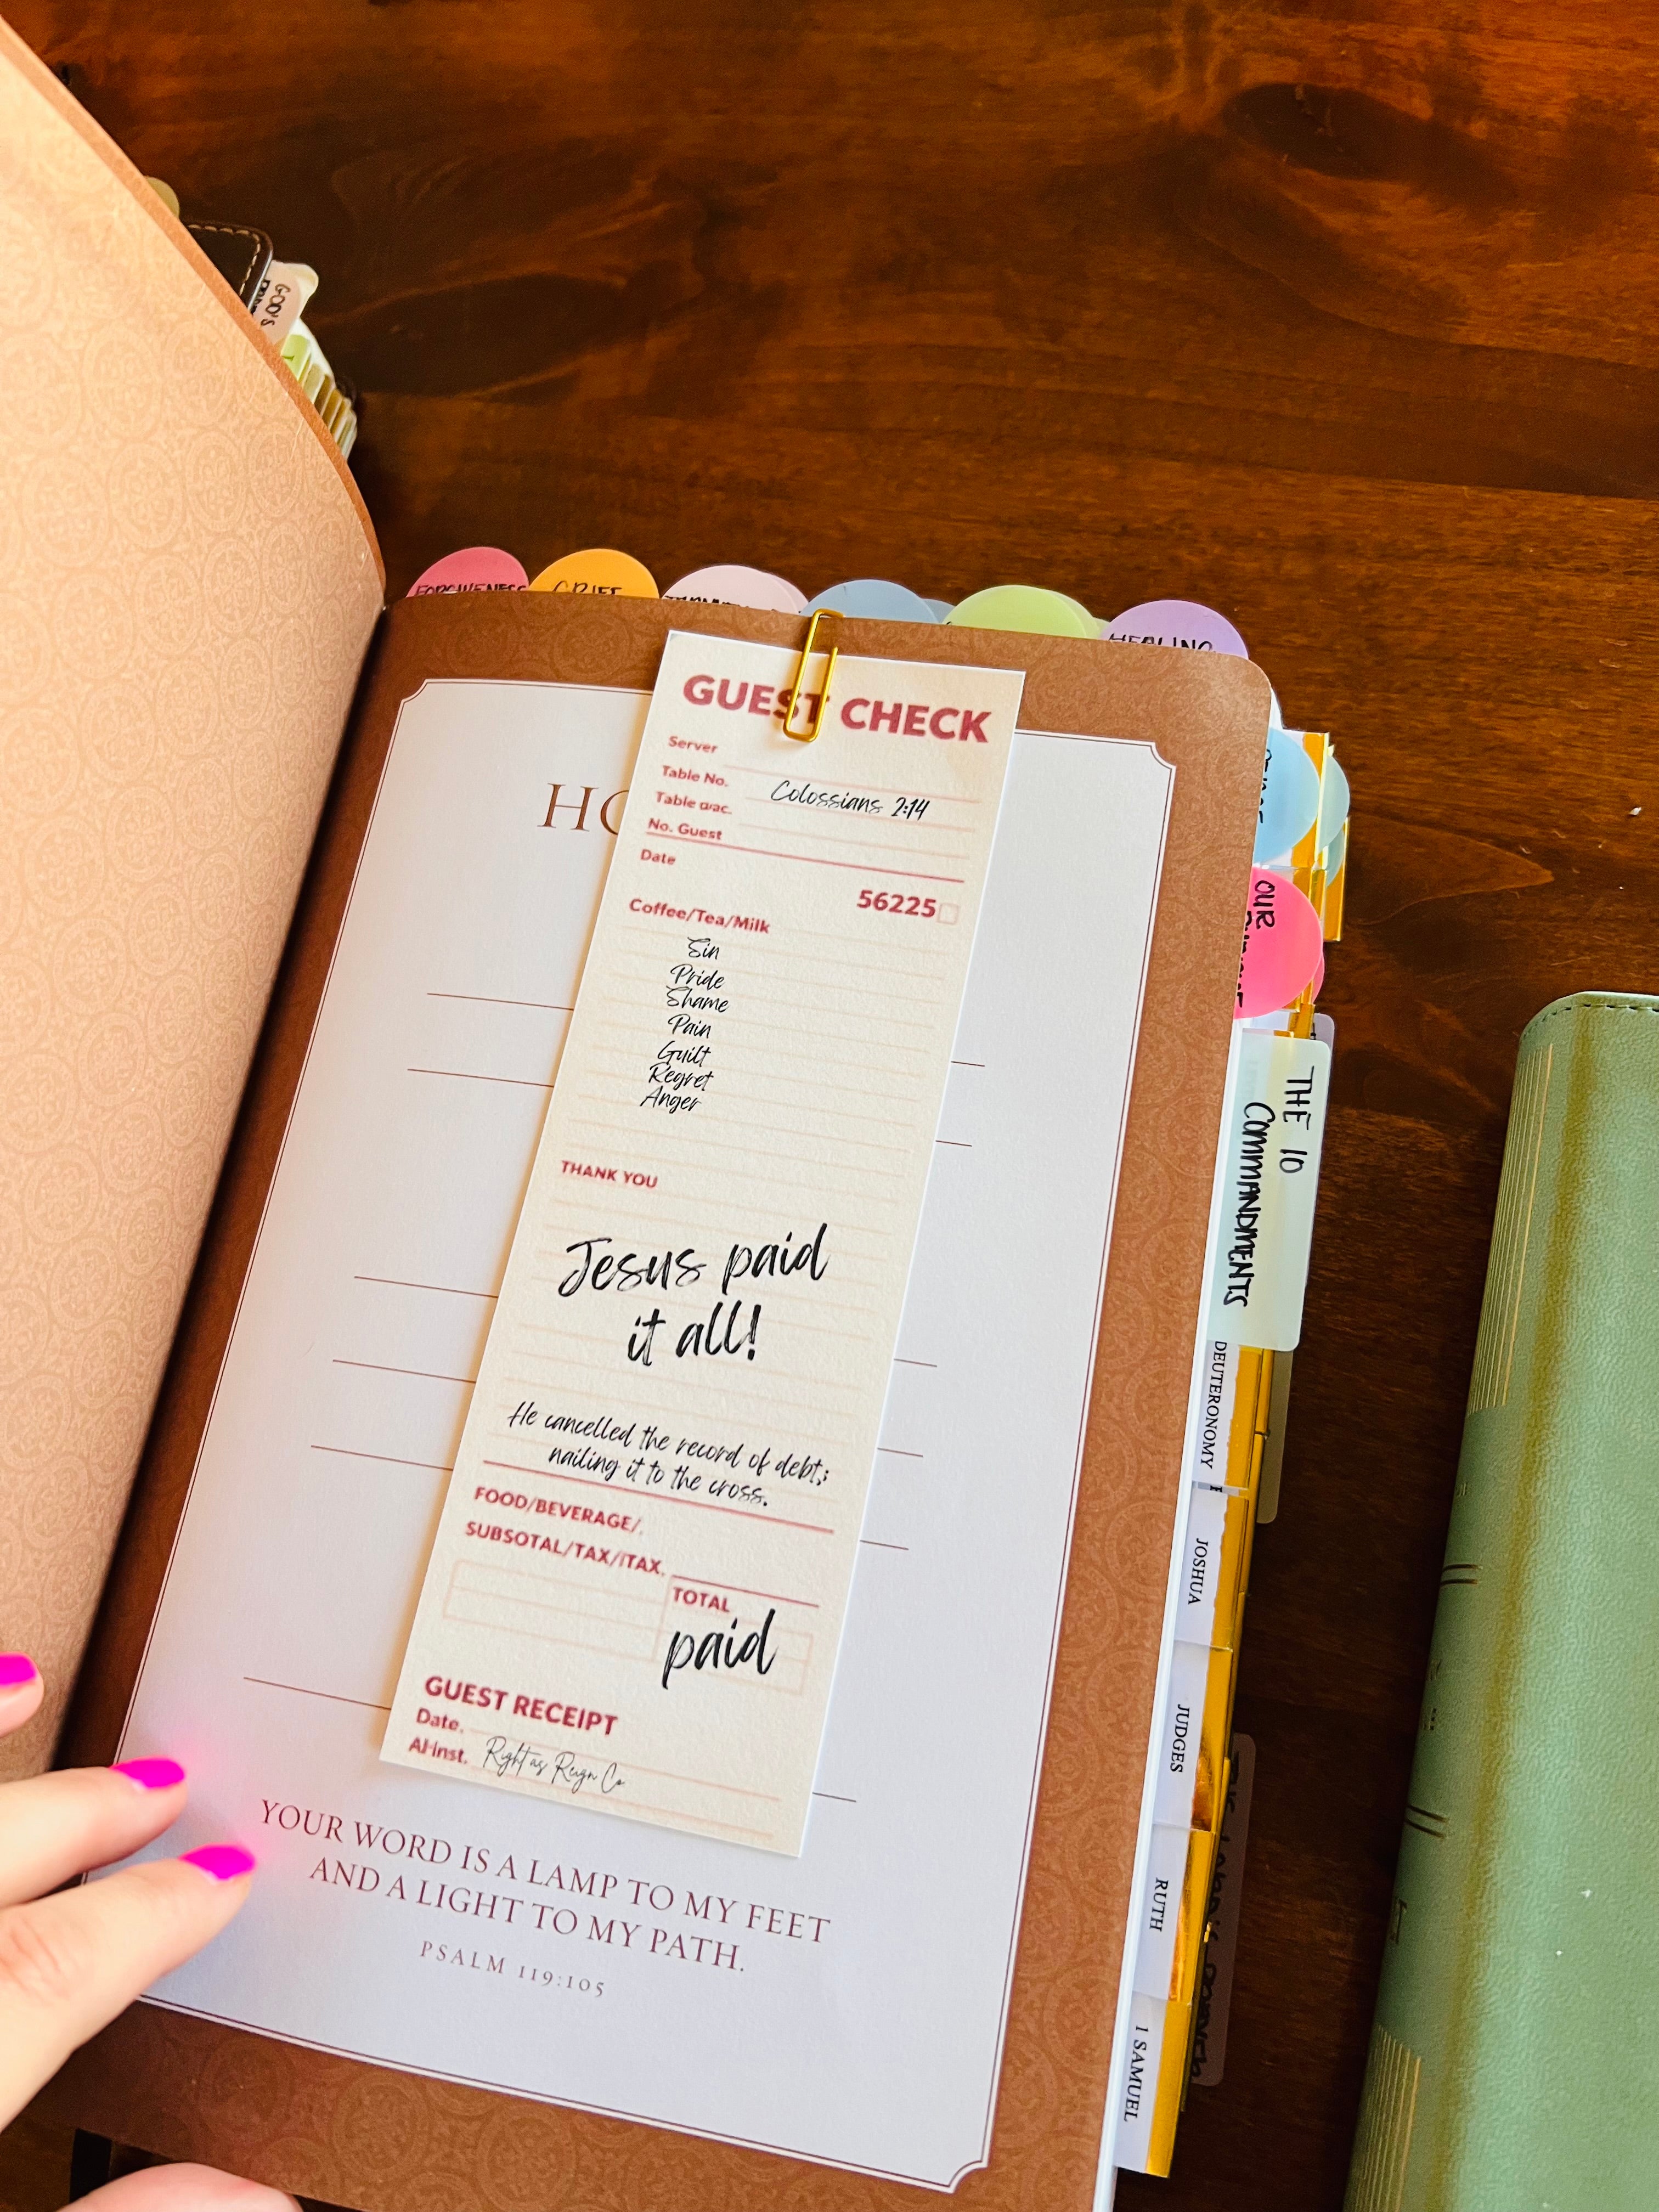 GOD'S
FORGIVENESS
GRIEF
HEALING
HO
GUEST CHECK
Server
Table No.
Colossians 2:14
Table a/ac.
No. Guest
Date
56225
Coffee/Tea/Milk
Sin
Pride
Shame
Pain
Guilt
Regret
Anger
THANK YOU
Jesus paid
it all!
He cancelled the record of debt;
nailing it to the cross.
FOOD/BEVERAGE/.
SUBSOTAL/TAX/ITAX.
TOTAL
paid
GUEST RECEIPT
Date.
Al-inst.
Right as Reign Co
YOUR WORD IS A LAMP TO MY FEET
AND A LIGHT TO MY PATH.
PSALM 119:105
OUR
THE 10
COMMANDMENTS
DEUTERONOMY
JOSHUA
JUDGES
RUTH
1 SAMUEL